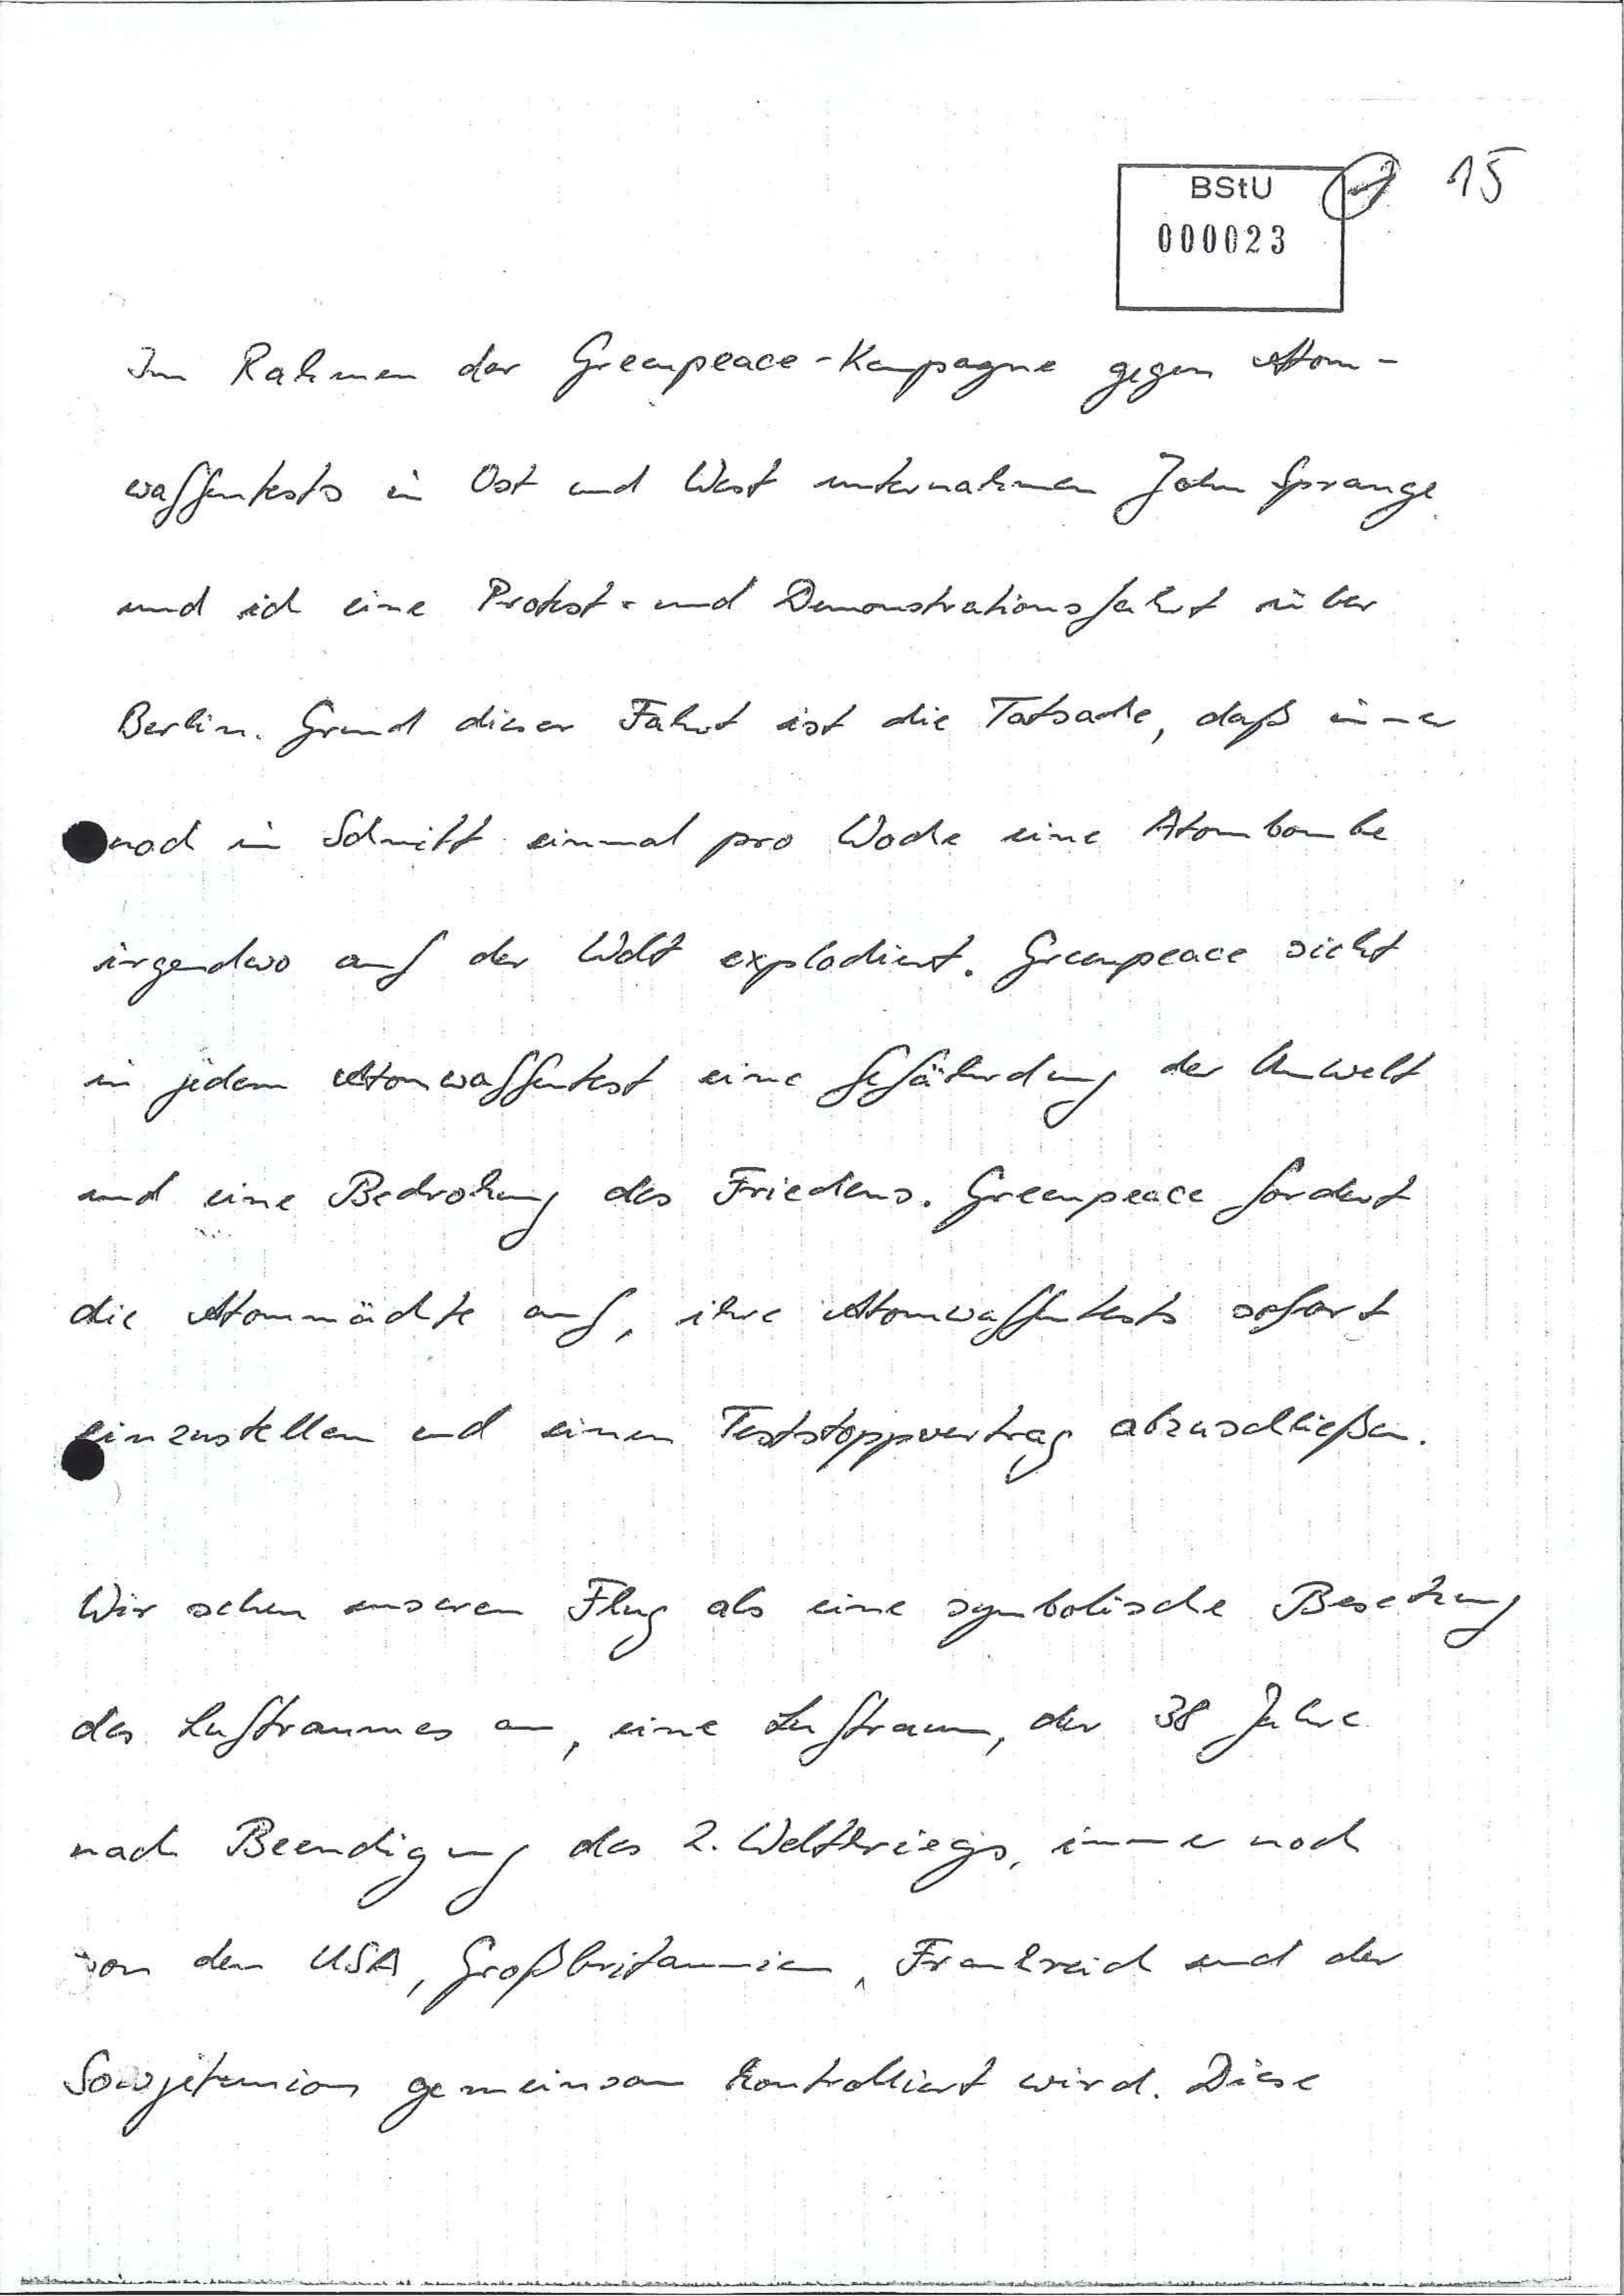 BStU
000023
15
Im Rahmen der Greenpeace-Kampagne gegen Atom-
waffentests in Ost und West unternahmen John Sprange
und ich eine Protest- und Demonstrationsfahrt über
Berlin. Grund dieser Fahrt ist die Tatsache, daß immer
noch im Schnitt einmal pro Woche eine Atombombe
irgendwo auf der Welt explodiert. Greenpeace sieht
in jedem Atomwaffentest eine Gefährdung der Umwelt
und eine Bedrohung des Friedens. Greenpeace fordert
die Atommächte auf, ihre Atomwaffentests sofort
einzustellen und einen Teststoppvertrag abzuschließen.
Wir sehen unseren Flug als eine symbolische Besetzung
des Luftraumes an, eine Luftraum, der 38 Jahre
nach Beendigung des 2. Weltkriegs, immer noch
von den USA, Großbritannien, Frankreich und der
Sowjetunion gemeinsam kontrolliert wird. Diese